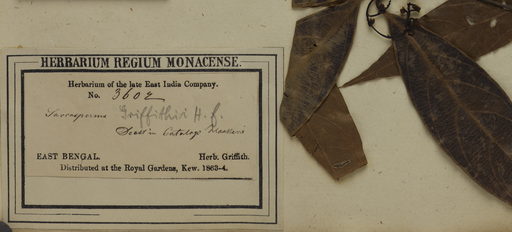 HERBARIUM REGIUM MONACENSE.
Herbarium of the late East India Company.
No. 3602
Sarcosperma Griffithii H. f.
in Catalog
EAST BENGAL. Herb. Griffith.
Distributed at the Royal Gardens, Kew. 1863-4.